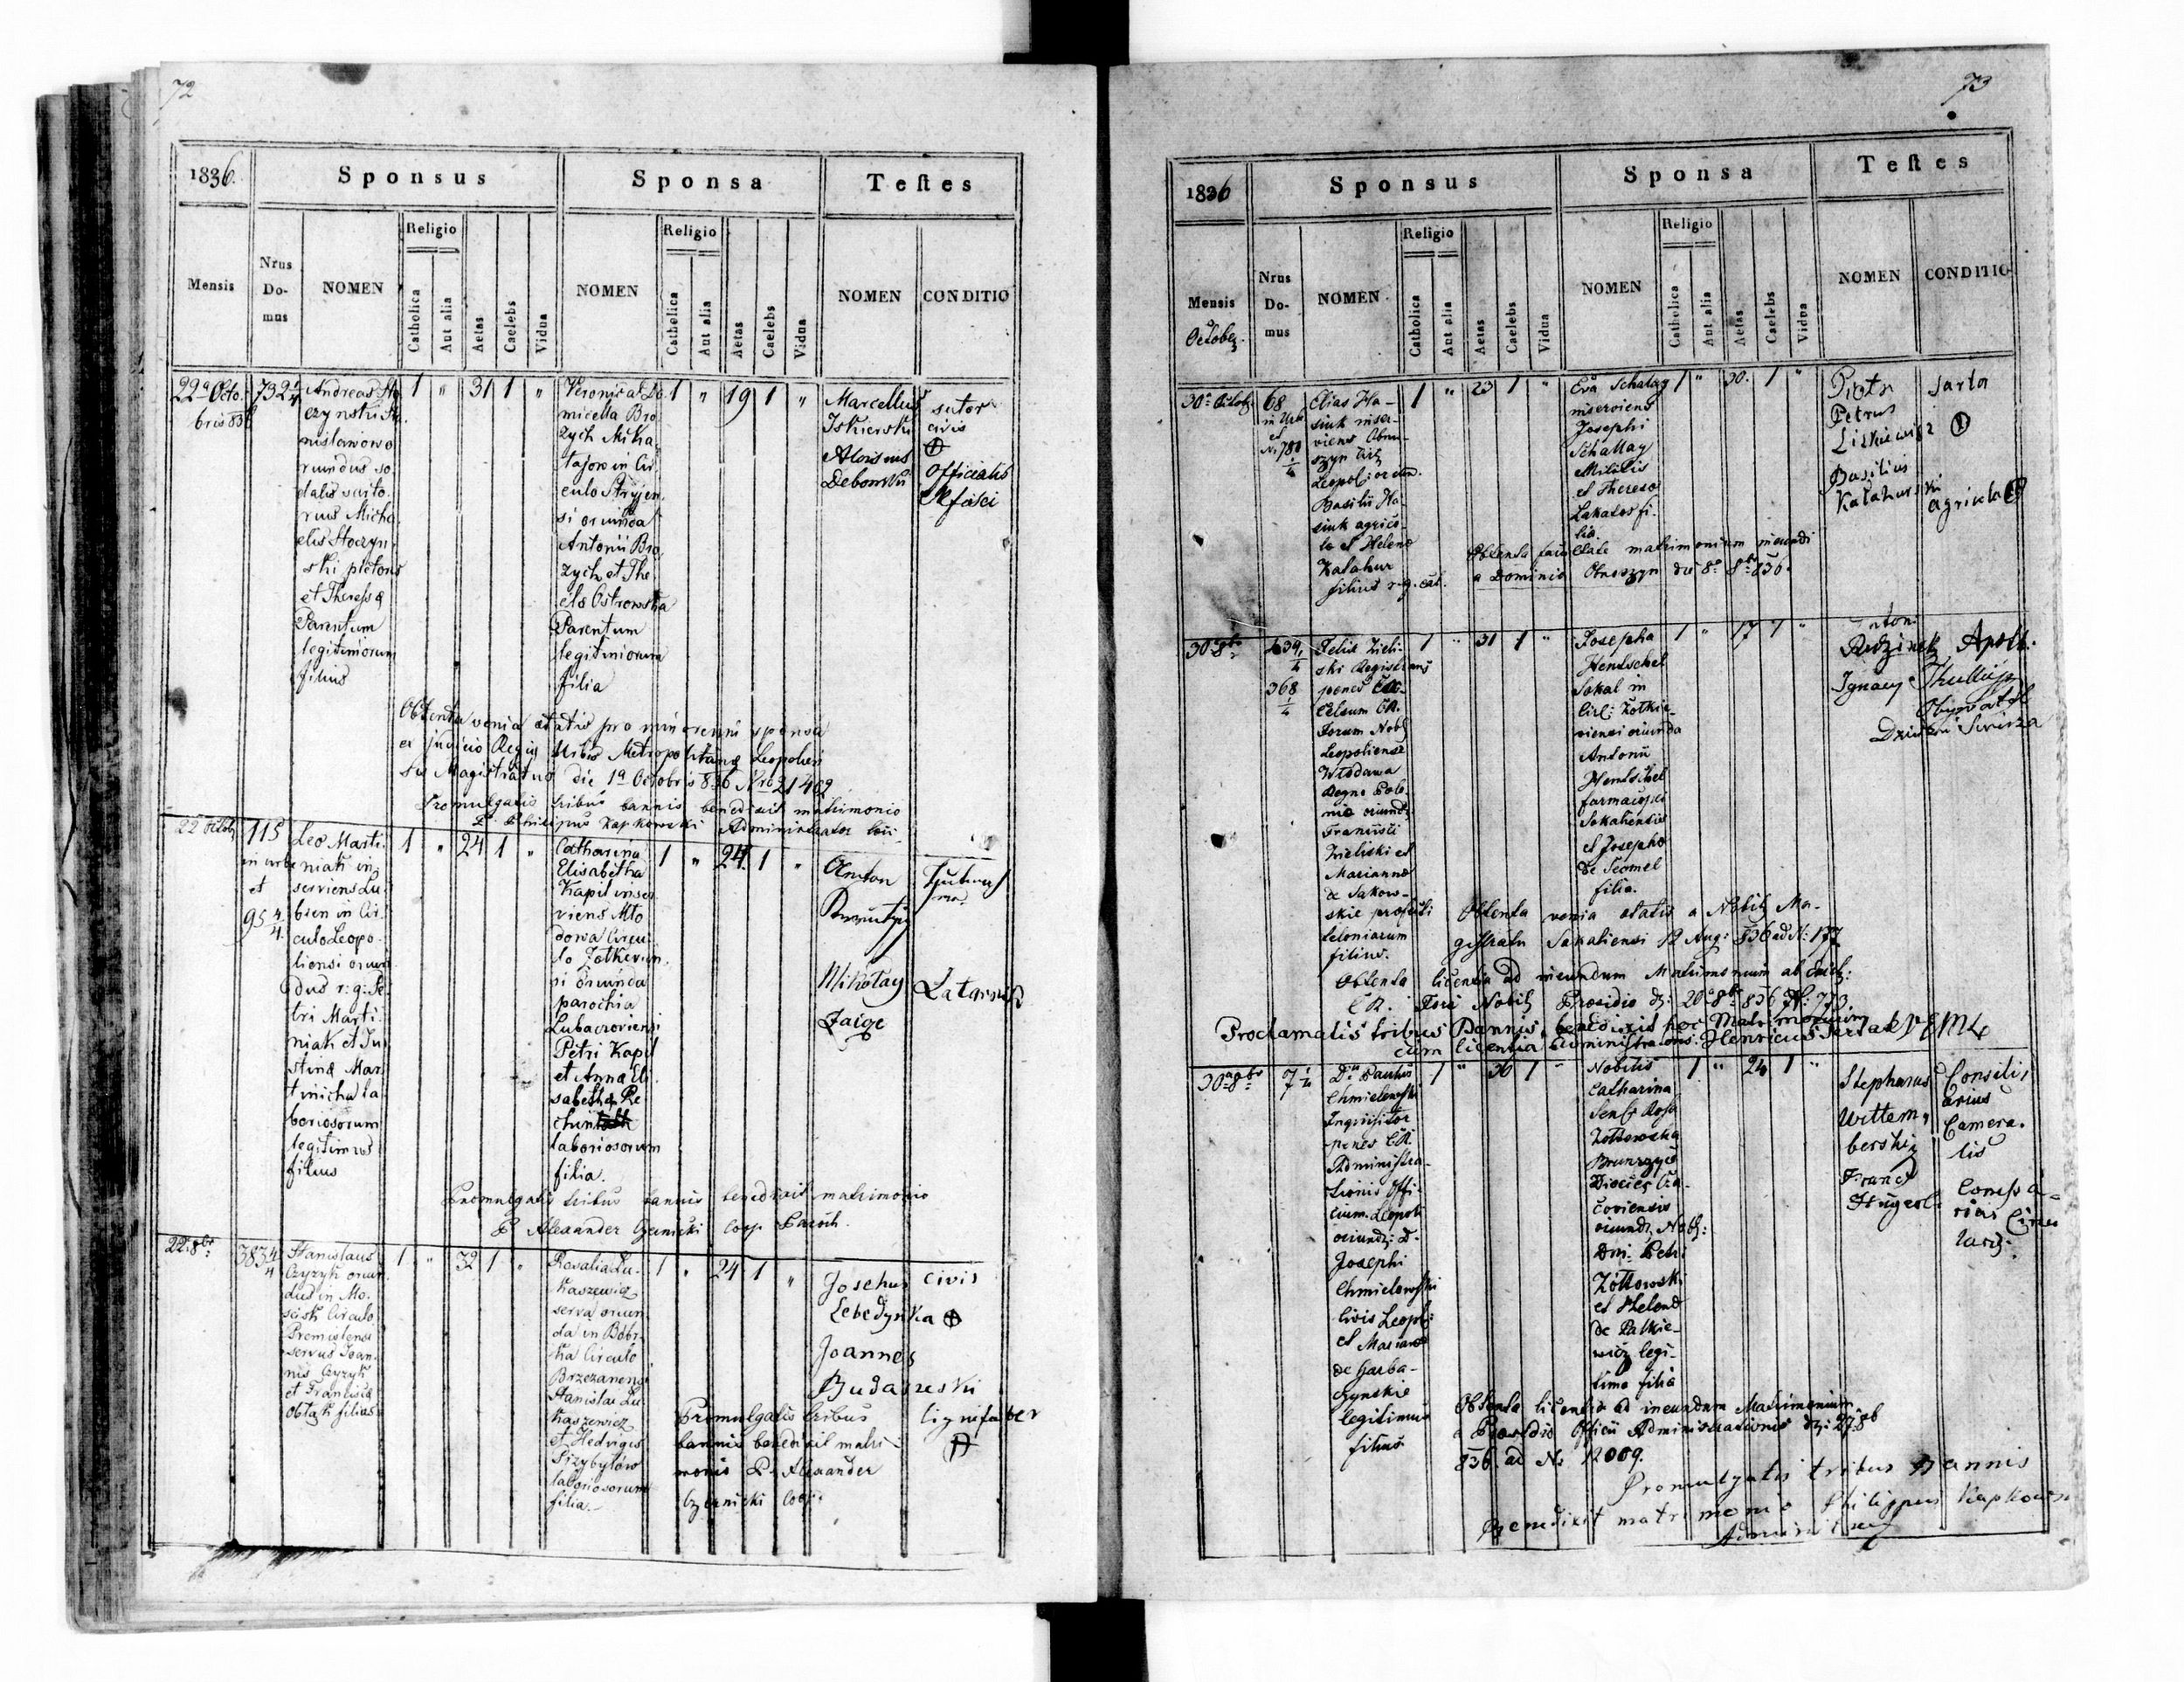 72
1836.
Sponsus
Sponsa
Testes
Mensis
Nrus
Do-
mus
NOMEN
Religio
Catholica
Aut alia
Aetas
Caelebs
Vidua
NOMEN
Religio
Catholica
Aut alia
Aetas
Caelebs
Vidua
NOMEN
CONDITIO
22a Octo.
bris 836
732 1/4
Andreas
czynski
nislawowo
riundus so
dalis
rius Micha
elis Stoczyn
ski pictoris
et Theressa
Parentum
legitimorum
filius
1 " 31 1 "
Veronica Do
micella Bro
zych Mika
lajow in Cir
culo Stryjen
si oriunda
Antonii Bro
zych et The
cla Ostrowska
Parentum
legitimorum
filia
1 " 19 1 "
Marcellus
Iskierski
Aloisius
Debowski
sutor
civis
Officialis
Obtenta venia ætatis pro minorenni sponsa
ex judicio Regiæ Urbis Metropolitanæ Leopolien
sis Magistratus die 1a Octobris 836 Nro 21402
Promulgatis tribus bannis benedixit matrimonio
P. Philipus Kapkowski Administrator loci
22 Octob
115
in urbe
et
95 4/4
Leo Marti
niak in
serviens Lu
bien in Cir
culo Leopo
liensi oriun
dus r: g: Pe
tri Marti
niak et Ju
stinæ Mar
tinicha la
boriosorum
legitimus
filius
1 " 24 1 "
Catharina
Elisabetha
Kapil inser
viens Mlo
dowa Circu
lo Zolkievien
si oriunda
parochia
Lubaczoviensi
Petri Kapil
et Anna Eli
sabetha Re
chun
laboriosorum
filia.
1 " 24. 1 "
Anton
Mikołay
Zaige
Latarnik
Promulgatis tribus bannis benedixit matrimonio
P Alexander Czernicki Coop Paroch.
22 8br
383 4/4
Stanislaus
Czyzyk oriun
dus in Mo.
scisk Circulo
Premislensi
servus Joan
nis Czyzyk
et Francisca
Obtak filius
1 " 32 1 "
Rosalia Lu
kaszewicz
serva oriun
da in Bobr
ka Circulo
Brzezanensi
Stanislai Lu
kaszewicz
et Hedvigis
Przybylow
laboriosorum
filia.
1 " 24 1 "
Josephus
Lebedynka
Joannes
Budaszeski
civis
lignifaber
Promulgatis tribus
bannis benedixit matri
monio P. Alexander
Czernicki Coop.
73
1836
Sponsus
Sponsa
Testes
Mensis
October
Nrus
Do-
mus
NOMEN
Religio
Catholica
Aut alia
Aetas
Caelebs
Vidua
NOMEN
Religio
Catholica
Aut alia
Aetas
Caelebs
Vidua
NOMEN
CONDITIO
30a Octob
68
in Urbe
et
N. 780
1/4
Elias Ha-
siuk inser-
viens Obro-
szyn Circ
Leopol: oriun.
Basilii Ha-
siuk agrico-
la et Helena
Kalahur
filius r. g. cat.
1 " 23 1 "
Eva Schallay
inserviens
Josephi
Schallay
Militis
et Theresa
Lakatos fi-
lia.
1 " 30. 1 "
Piotr
Petrus
Liskiewicz
Basilius
Kalahurski
sarta
agricola
Obtenta facultate matrimonium ineundi
a Dominio Obroszyn die 8a 8br 836.
30 8br
639 1/4
368
1/4
Felix Zieli-
ski Registrans
penes
Celsum CR.
Forum Nobil
Leopoliense
Wlodawa
Regno Polo-
nia oriund
Francisci
Zieliski et
Marianna
de Sakow-
skie profecti
teloniarum
filius.
1 " 31 1 "
Josepha
Hentschel
Sokal in
Circ: Zolkie-
viensi oriunda
Antonii
Hentschel
farmacopei
Sokaliensis
et Josepha
de Seomel
filia.
1 " 17 1 "
Antoni
Ignacy Thullie
Apoth.
Obywatel
Obtenta venia ætatis a Nobili Ma-
gistratu Sokaliensi 12 Aug: 836 ad N: 177
Obtenta licentia ad ineundum Matrimonium ab Excels:
C R. Fori Nobil Præsidio d: 20a 8br 836 N: 773.
Proclamatis tribus Bannis, benedixit hoc Matrimonium
cum licentia Administratoris Henricus
30a 8br
7 1/4
Dnus Paulus
Chmielewski
Inquisitor
penes CR.
Administra-
tionis Offi-
cium. Leopoli
oriundz: D.
Josephi
Chmielowski
Civis Leopol:
et Marianna
de Garba-
czynskie
legitimus
filius
1 " 30 1 "
Nobilis
Catharina
Senf Rosa
Zoltowska
Brunszyce
Dioces: Cra-
coviensis
oriund, Nob:
Dni. Petri
Zoltowski
et Helena
de Palkie-
wicz legi-
tima filia
1 " 24 1 "
Stephanus
Wittem-
berski
Franc
Consili
arius
Camera.
lis
Obtenta licentia ad ineundum Matrimonium
a Præsidio Officii Administrationis d: 27 8br
836. ad No 12009.
Promulgatis tribus Bannis
Benedixit matrimonio Philippus Kapkowski